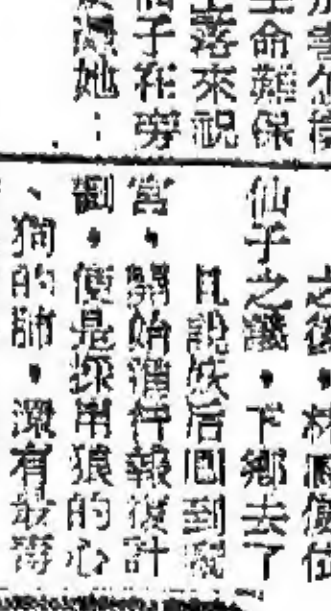 命難保
落來
子在旁
她：
之後，林
仙子之議，下鄉去了
且說妖后回到
宮，開始進行報復計
劃，便是採用狼的心
、狗的肺，還有最毒